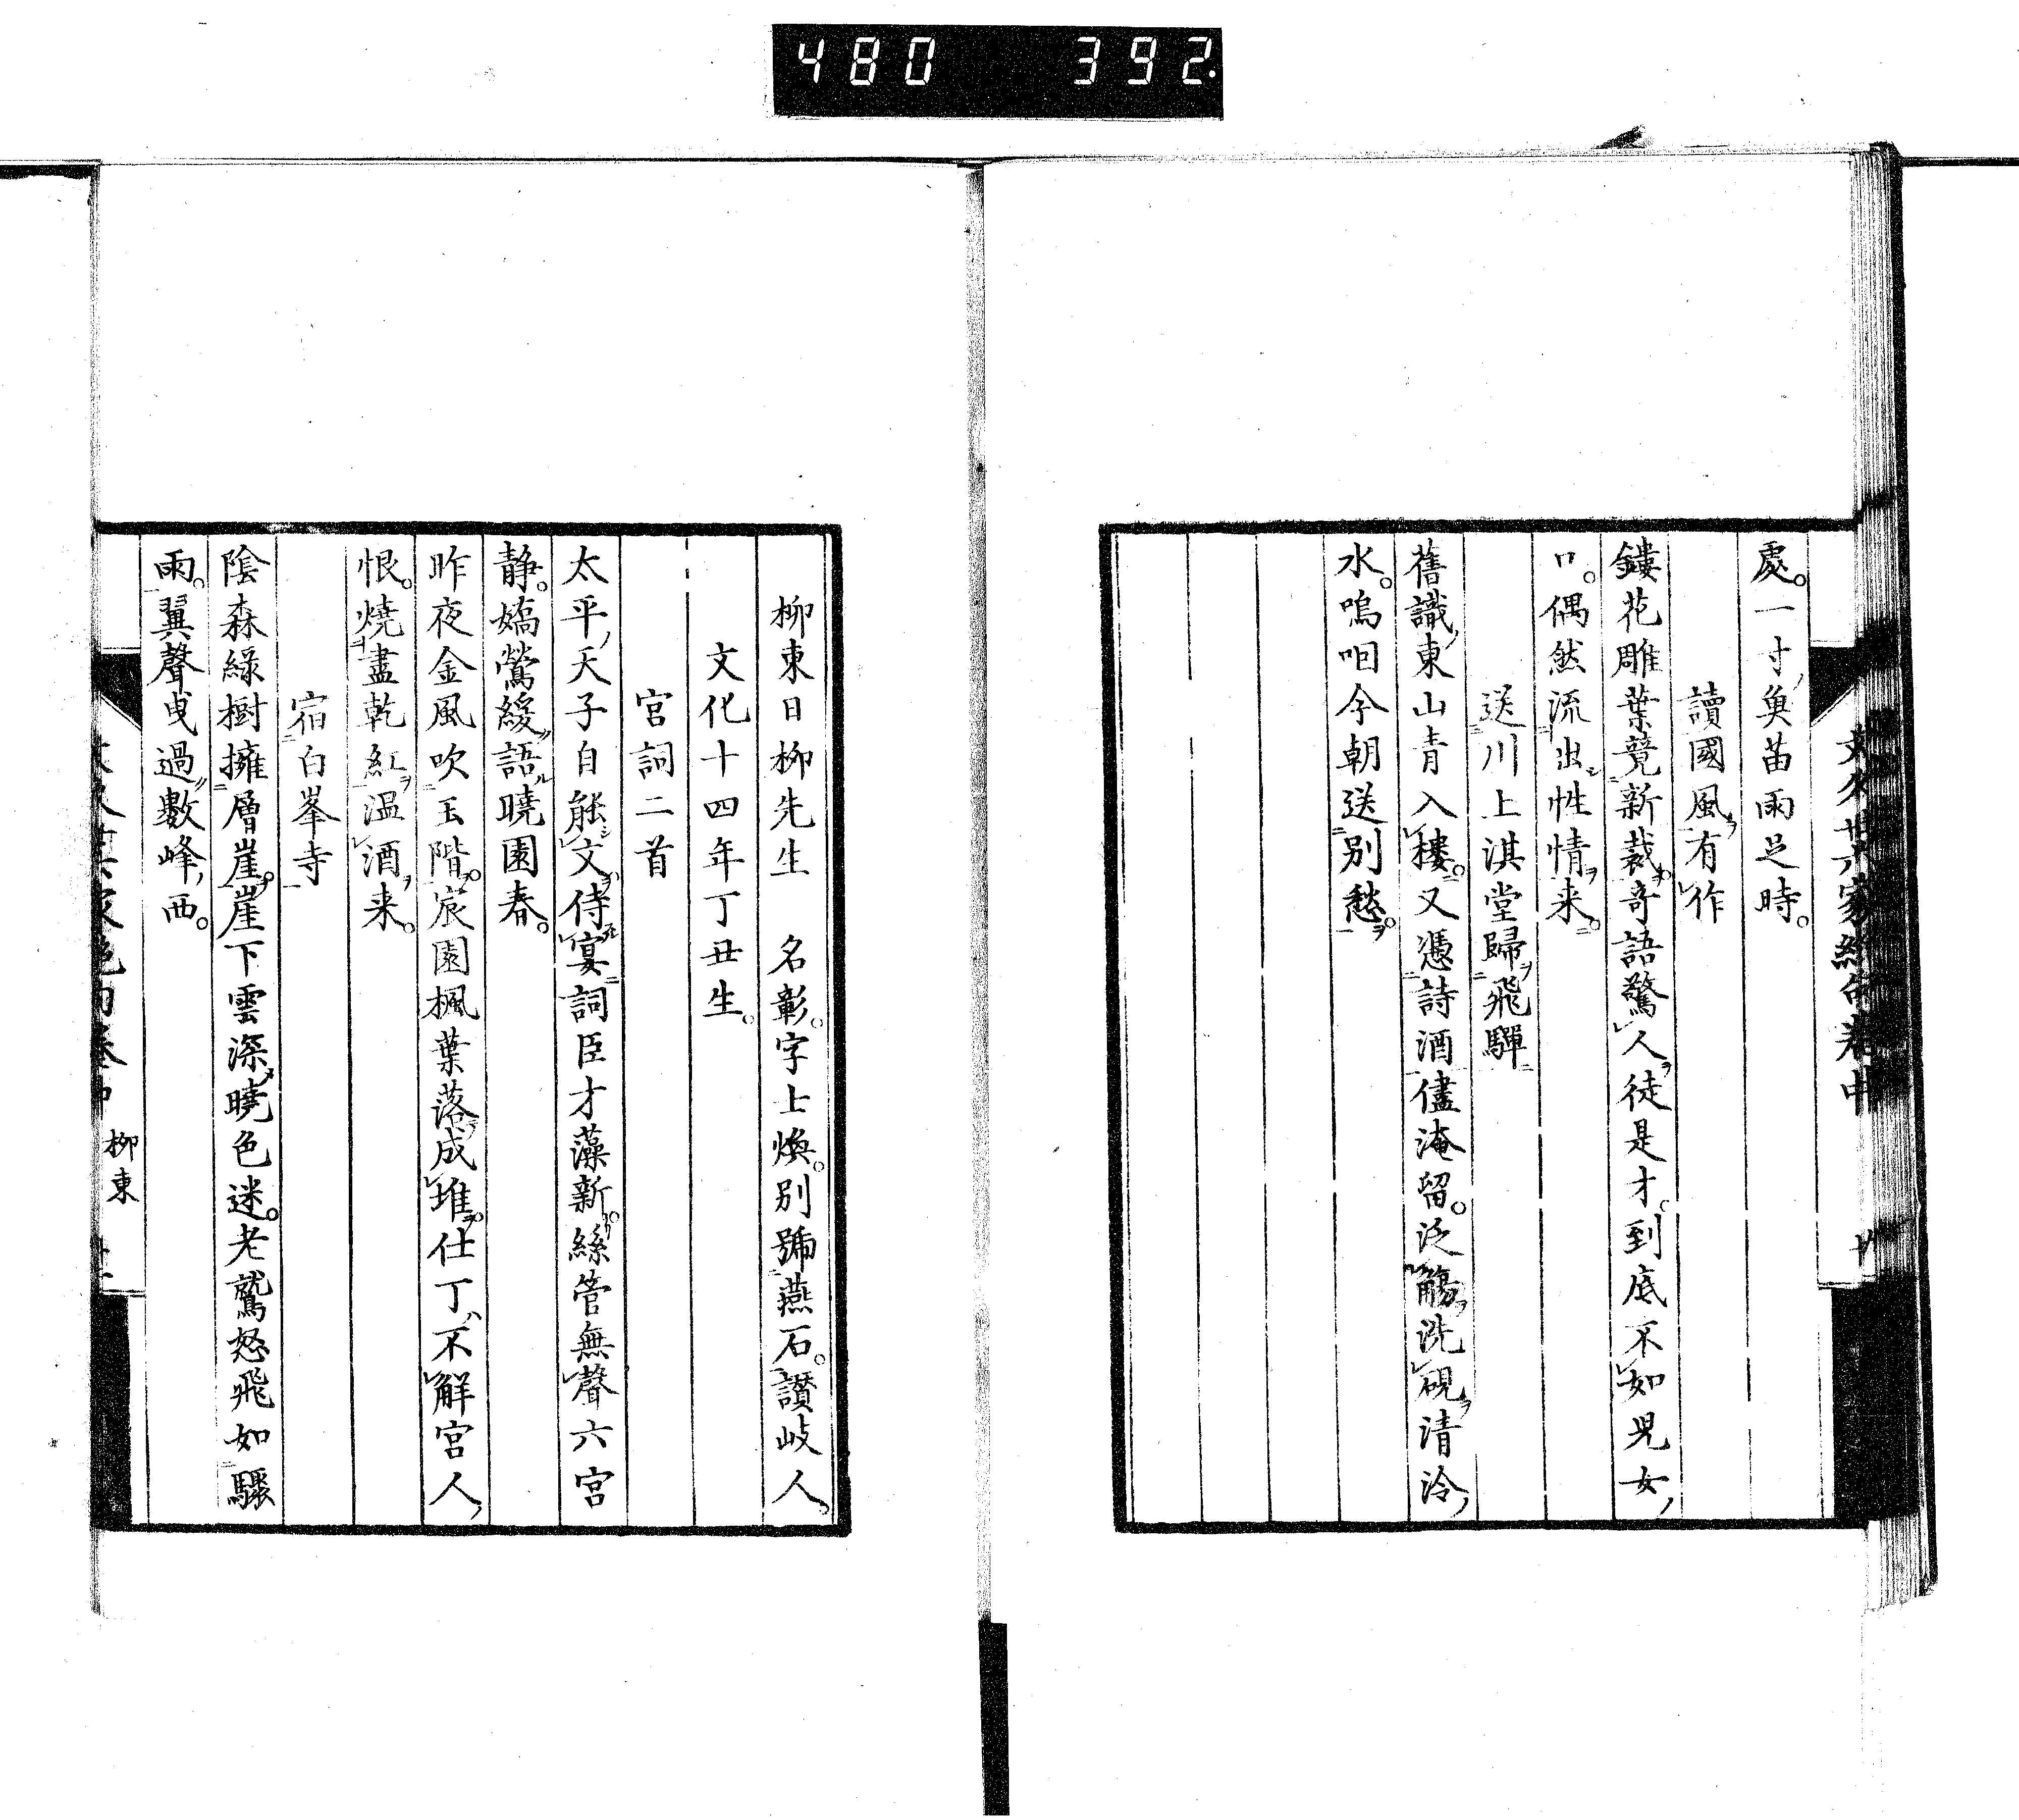 480 392
文久廿六家絶句卷中
處。一寸魚苗雨足時。
讀國風有作
鏤花雕葉竟新裁奇語驚人徒是才。到底不如兒女
口。偶然流出性情来。
送川上淇堂歸飛驒
舊識東山青入樓。又憑詩酒儘淹留。泛觴洗硯清泠
水。嗚咽今朝送別愁。
柳東日柳先生 名彰。字士煥。別號燕石。讃岐人。
文化十四年丁丑生。
宮詞二首
太平天子自能文侍宴詞臣才藻新。絲管無聲六宮
静。嬌鶯緩語曉園春。
昨夜金風吹玉階。宸園楓葉落成堆。仕丁不解宮人
恨。燒盡乾紅温酒来。
宿白峯寺
陰森綠樹擁層崖。崖下雲深曉色迷。老鷲怒飛如驟
雨。翼聲曳過數峰西。
柳東